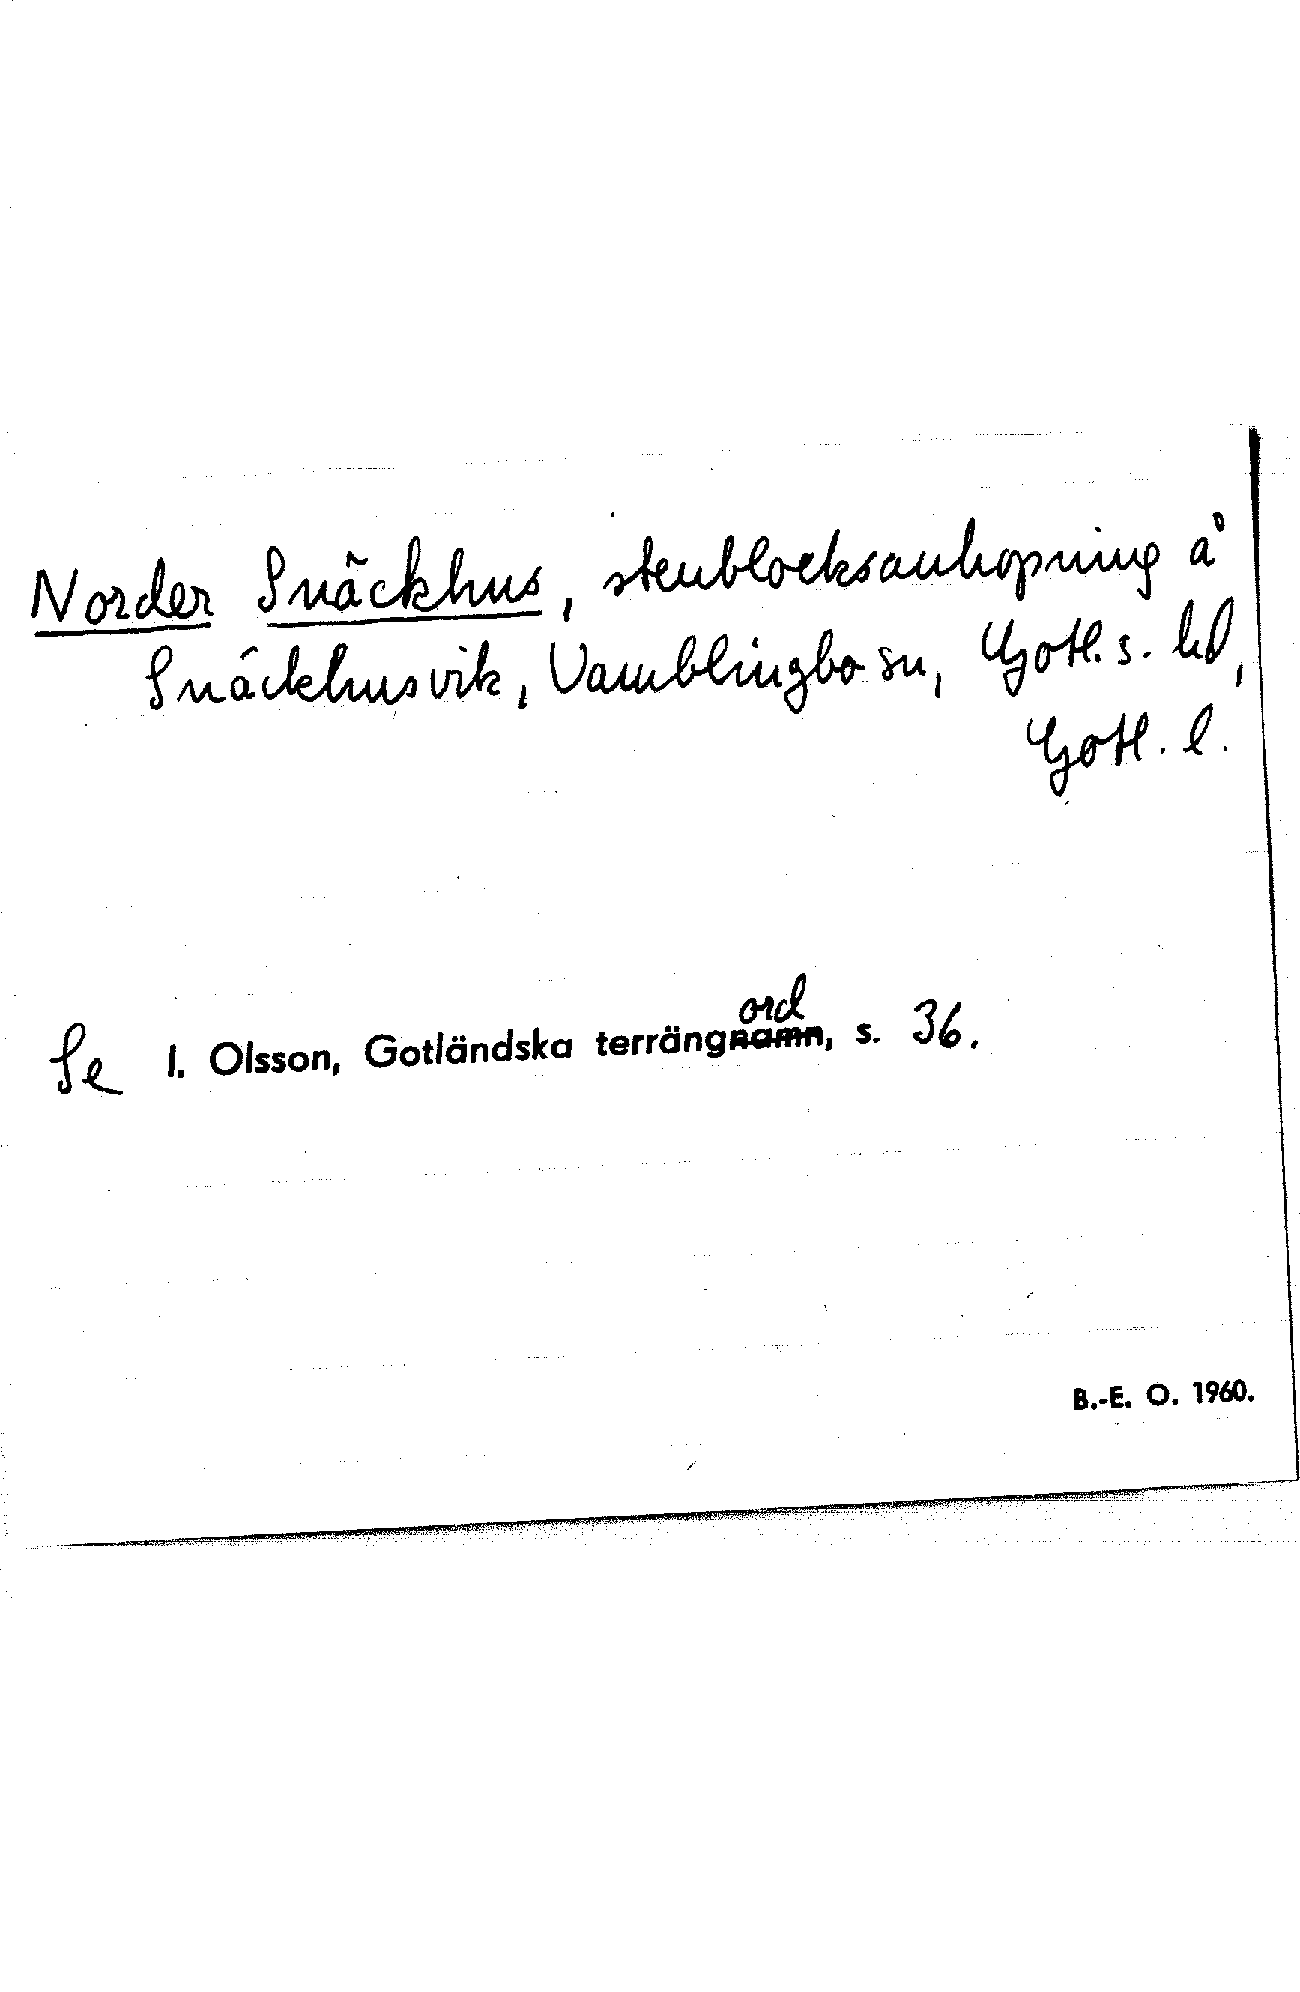 Norder Snäckhus, stenblocksanhopning å
Snäckhusvik, Vamblingbo sn, Gotl. s. hd,
Gotl. l.
Se I. Olsson, Gotländska terrängnamn ord, s. 36.
B.-E. O. 1960.